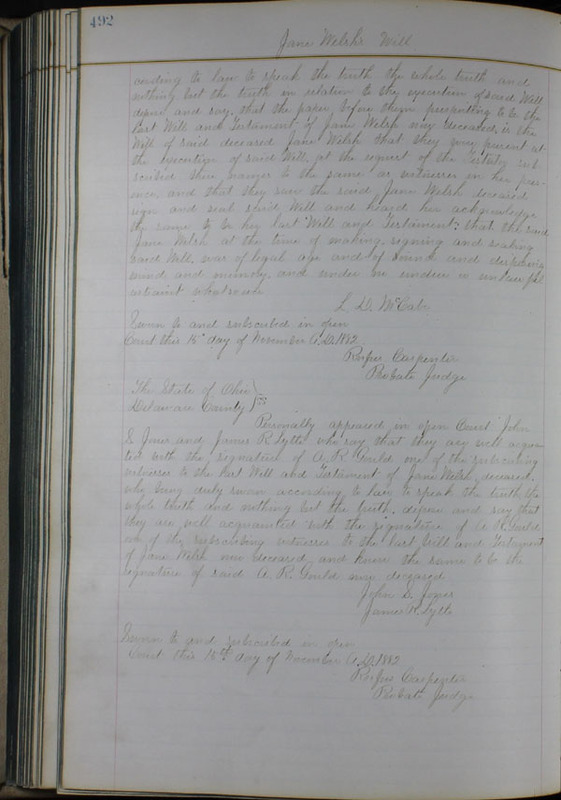 492
Jane Welsh's Will
cording to law to speak the truth the whole truth and
nothing but the truth in relation to the execution of said Will
depose and say, that the paper before them purporting to be the
Last Will and Testament of Jane Welsh now deceased, is the
Will of said deceased Jane Welsh that they were present at
the execution of said Will, at the request of the Testatrix sub-
scribed their names to the same as witnesses in her pres-
ence, and that they saw the said Jane Welsh deceased
sign and seal said Will and heard her acknowledge
the same to be her last Will and Testament: that the said
Jane Welsh at the time of making, signing and sealing
said Will, was of legal age and of sound and disposing
mind and memory, and under no undue or unlawful
restraint whatsoever
L. D. McCabe
Sworn to and subscribed in open
Court this 15" day of November A.D. 1882
Rufus Carpenter
Probate Judge
The State of Ohio }
Delaware County } ss
Personally appeared in open Court John
S Jones and James R Lytle who say that they are well acquain-
ted with the signature of A. R. Gould one of the subscribing
witnesses to the Last Will and Testament of Jane Welsh, deceased,
who being duly sworn according to law to speak the truth, the
whole truth and nothing but the truth, depose and say that
they are well acquainted with the signature of A. R. Gould
one of the subscribing witnesses to the last Will and Testament
of Jane Welsh now deceased and know the same to be the
signature of said A. R. Gould now deceased
John S. Jones
James R. Lytle
Sworn to and subscribed in open
Court this 15th day of November A.D. 1882
Rufus Carpenter
Probate Judge